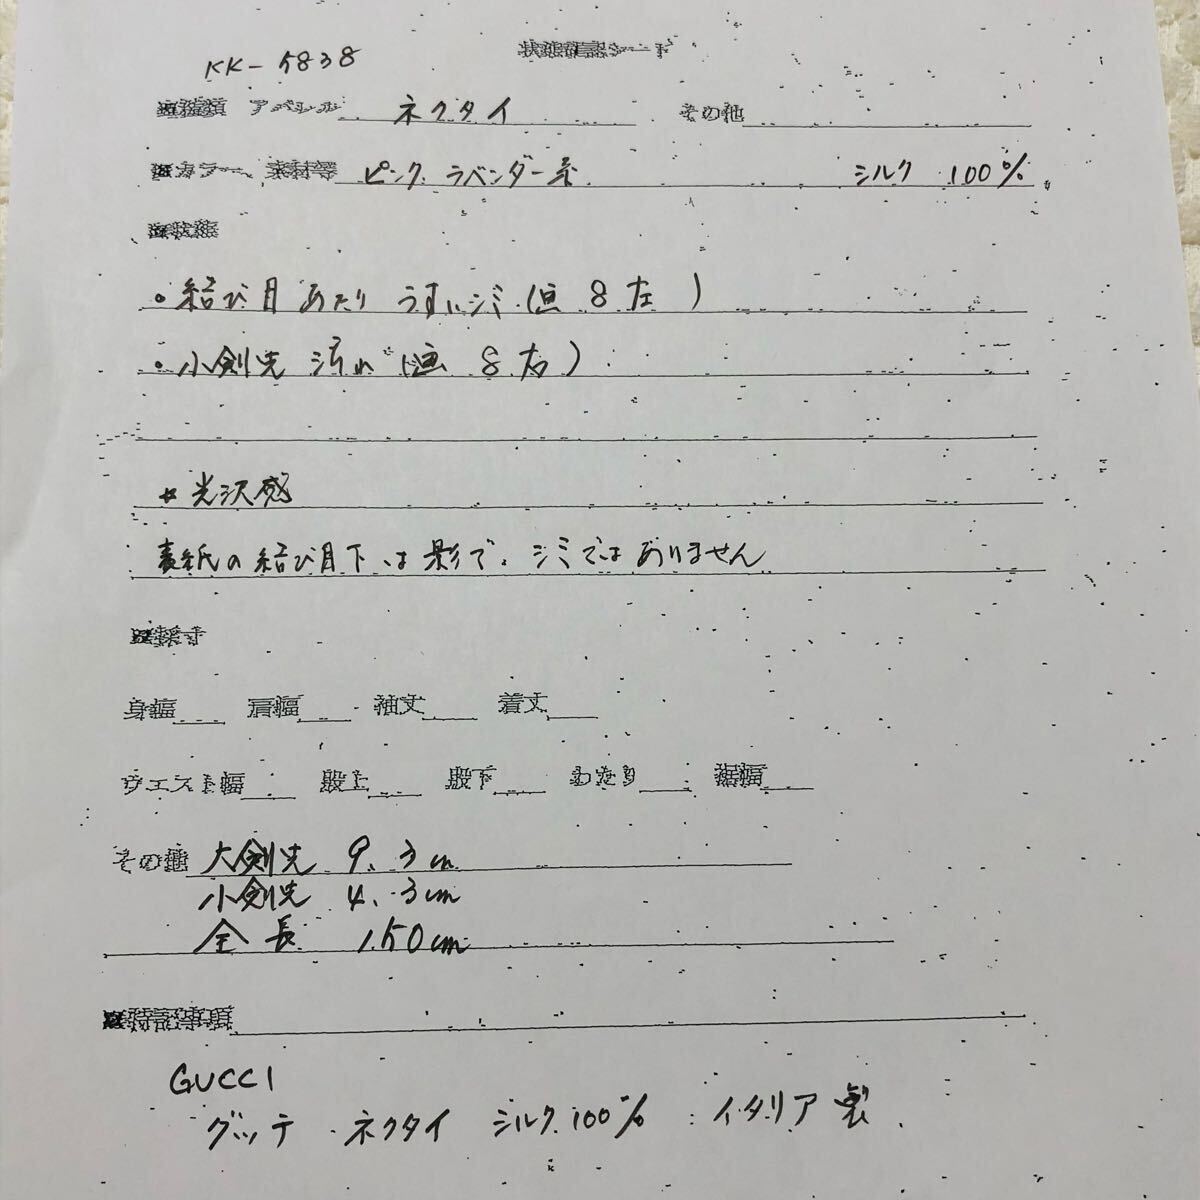 KK-5838
状態確認シート
■種類 アパレル ネクタイ その他
■カラー、素材等 ピンク ラベンダー系 シルク 100%
■状態
・結び目あたり うすいシミ(画 8 左)
・小剣先 汚れ(画 8 右)
☆光沢感
表紙の結び目下は影で、シミではありません
■採寸
身幅 肩幅 袖丈 着丈
ウエスト幅 股上 股下 わたり 裾幅
その他 大剣先 9.3cm
小剣先 4.3cm
全長 150cm
■特記事項
GUCCI
グッチ ネクタイ シルク100% イタリア製